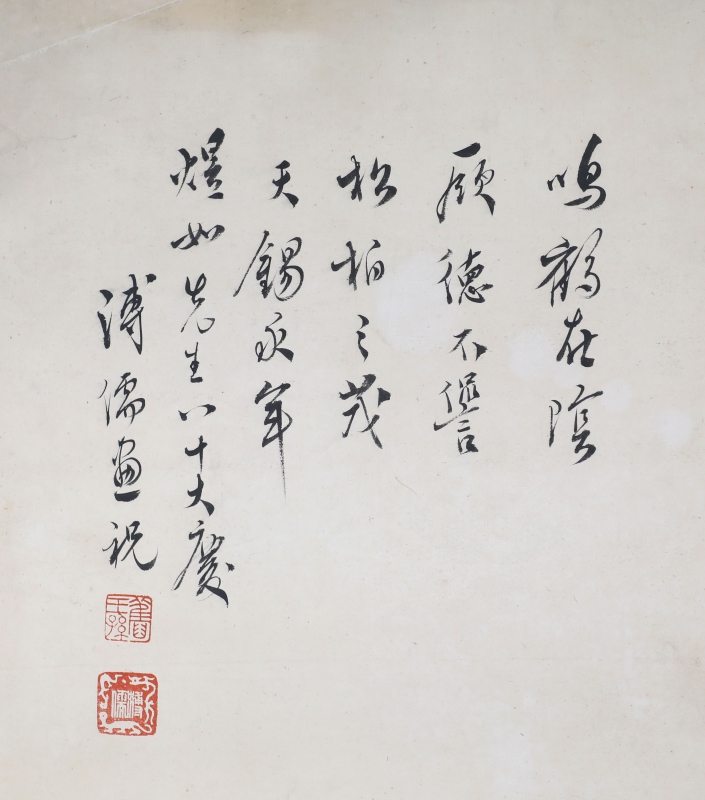 鳴鶴在陰
厥德不諐
松柏之茂
天錫永年
煜如先生八十大慶
溥儒畫祝
舊王孫
溥儒